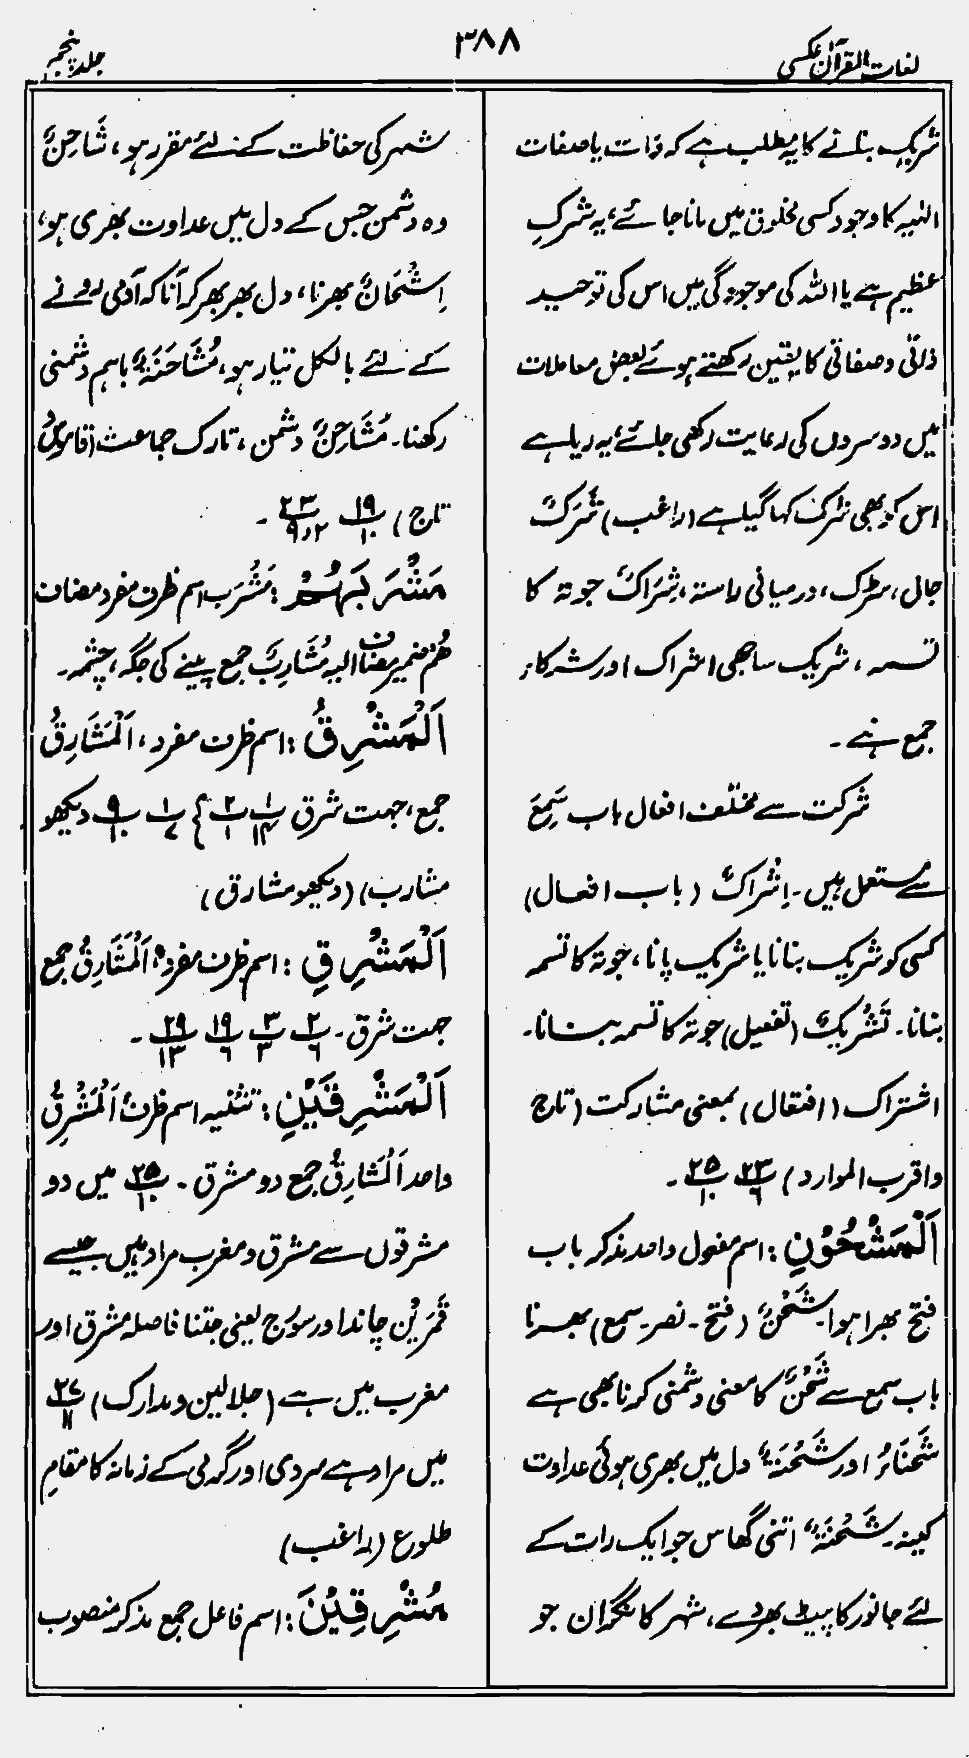 لغات القرآن عکسی
۳۸۸
جلد پنجم
شریک بنانے کا یہ مطلب ہے کہ ذات یا صفات
الٰہیہ کا وجود کسی مخلوق میں مانا جائے، یہ شرکِ
عظیم ہے یا اللہ کی موجودگی میں اس کی توحید
ذاتی و صفاتی کا یقین رکھتے ہوئے بعض معاملات
میں دوسروں کی رعایت رکھی جائے، یہ ریا ہے
اس کو بھی شرک کہا گیا ہے (راغب) شَرَکٌ
جال، سڑک، درمیانی راستہ، شِرَاکٌ جوتہ کا
تسمہ، شریک ساجھی اشراک اور شرکاء
جمع ہے۔
شرکت سے مختلف افعال باب سَمِعَ
سے مستعمل ہیں۔ اِشْرَاکٌ (باب افعال)
کسی کو شریک بنانا یا شریک پانا، جوتہ کا تسمہ
بنانا۔ تَشْرِیْکٌ (تفعیل) جوتہ کا تسمہ بنانا۔
اشتراک (افتعال) بمعنی مشارکت (تاج
واقرب الموارد) ۲۳/۶ ۲۵/۱۰۔
اَلْمَشْحُوْنِ : اسم مفعول واحد مذکر باب
فتح بھرا ہوا۔ شَحْنٌ (فتح۔ نصر۔ سمع) بھرنا
باب سمع سے شَحْنٌ کا معنی دشمنی کرنا بھی ہے
شَحْنَاءُ اور شَحْنَةٌ دل میں بھری ہوئی عداوت
کینہ۔ شَحْنَةٌ اتنی گھاس جو ایک رات کے
لئے جانور کا پیٹ بھر دے، شہر کا نگران جو
شہر کی حفاظت کے لئے مقرر ہو، شَاحِنٌ
وہ دشمن جس کے دل میں عداوت بھری ہو،
اِشْحَانٌ بھرنا، دل بھر بھر کر آنا کہ آدمی رونے
کے لئے بالکل تیار ہو، مُشَاحَنَةٌ باہم دشمنی
رکھنا۔ مُشَاحِنٌ دشمن، تارک جماعت (قاموس
تاج) ۱۹/۱۰ ۲۳/۹٫۲۔
مَشْرَبَهُمْ : مَشْرَب اسم ظرف مفرد مضاف
هُمْ ضمیر مضاف الیہ مَشَارِبُ جمع پینے کی جگہ، چشمہ۔
اَلْمَشْرِقُ : اسم ظرف مفرد، اَلْمَشَارِقُ
جمع، جہت شرق ۱/۱۴ ۲/۱ } ۱/۷ ۹/۱۰ دیکھو
مشارب) (دیکھو مشارق)
اَلْمَشْرِقِ : اسم ظرف مفرد، اَلْمَشَارِقُ جمع
جہت شرق۔ ۲/۶ ۳/۳ ۱۹/۶ ۲۹/۱۳۔
اَلْمَشْرِقَيْنِ : تثنیہ اسم ظرف اَلْمَشْرِقُ
واحد اَلْمَشَارِقُ جمع دو مشرق۔ ۲۵/۱۰ میں دو
مشرقوں سے مشرق و مغرب مراد ہیں جیسے
قَمَرَيْن چاند اور سورج یعنی جتنا فاصلہ مشرق اور
مغرب میں ہے (جلالین و مدارک) ۲۷/۱۱
میں مراد ہے سردی اور گرمی کے زمانہ کا مقام
طلوع (راغب)
مُشْرِقِيْنَ : اسم فاعل جمع مذکر منصوب